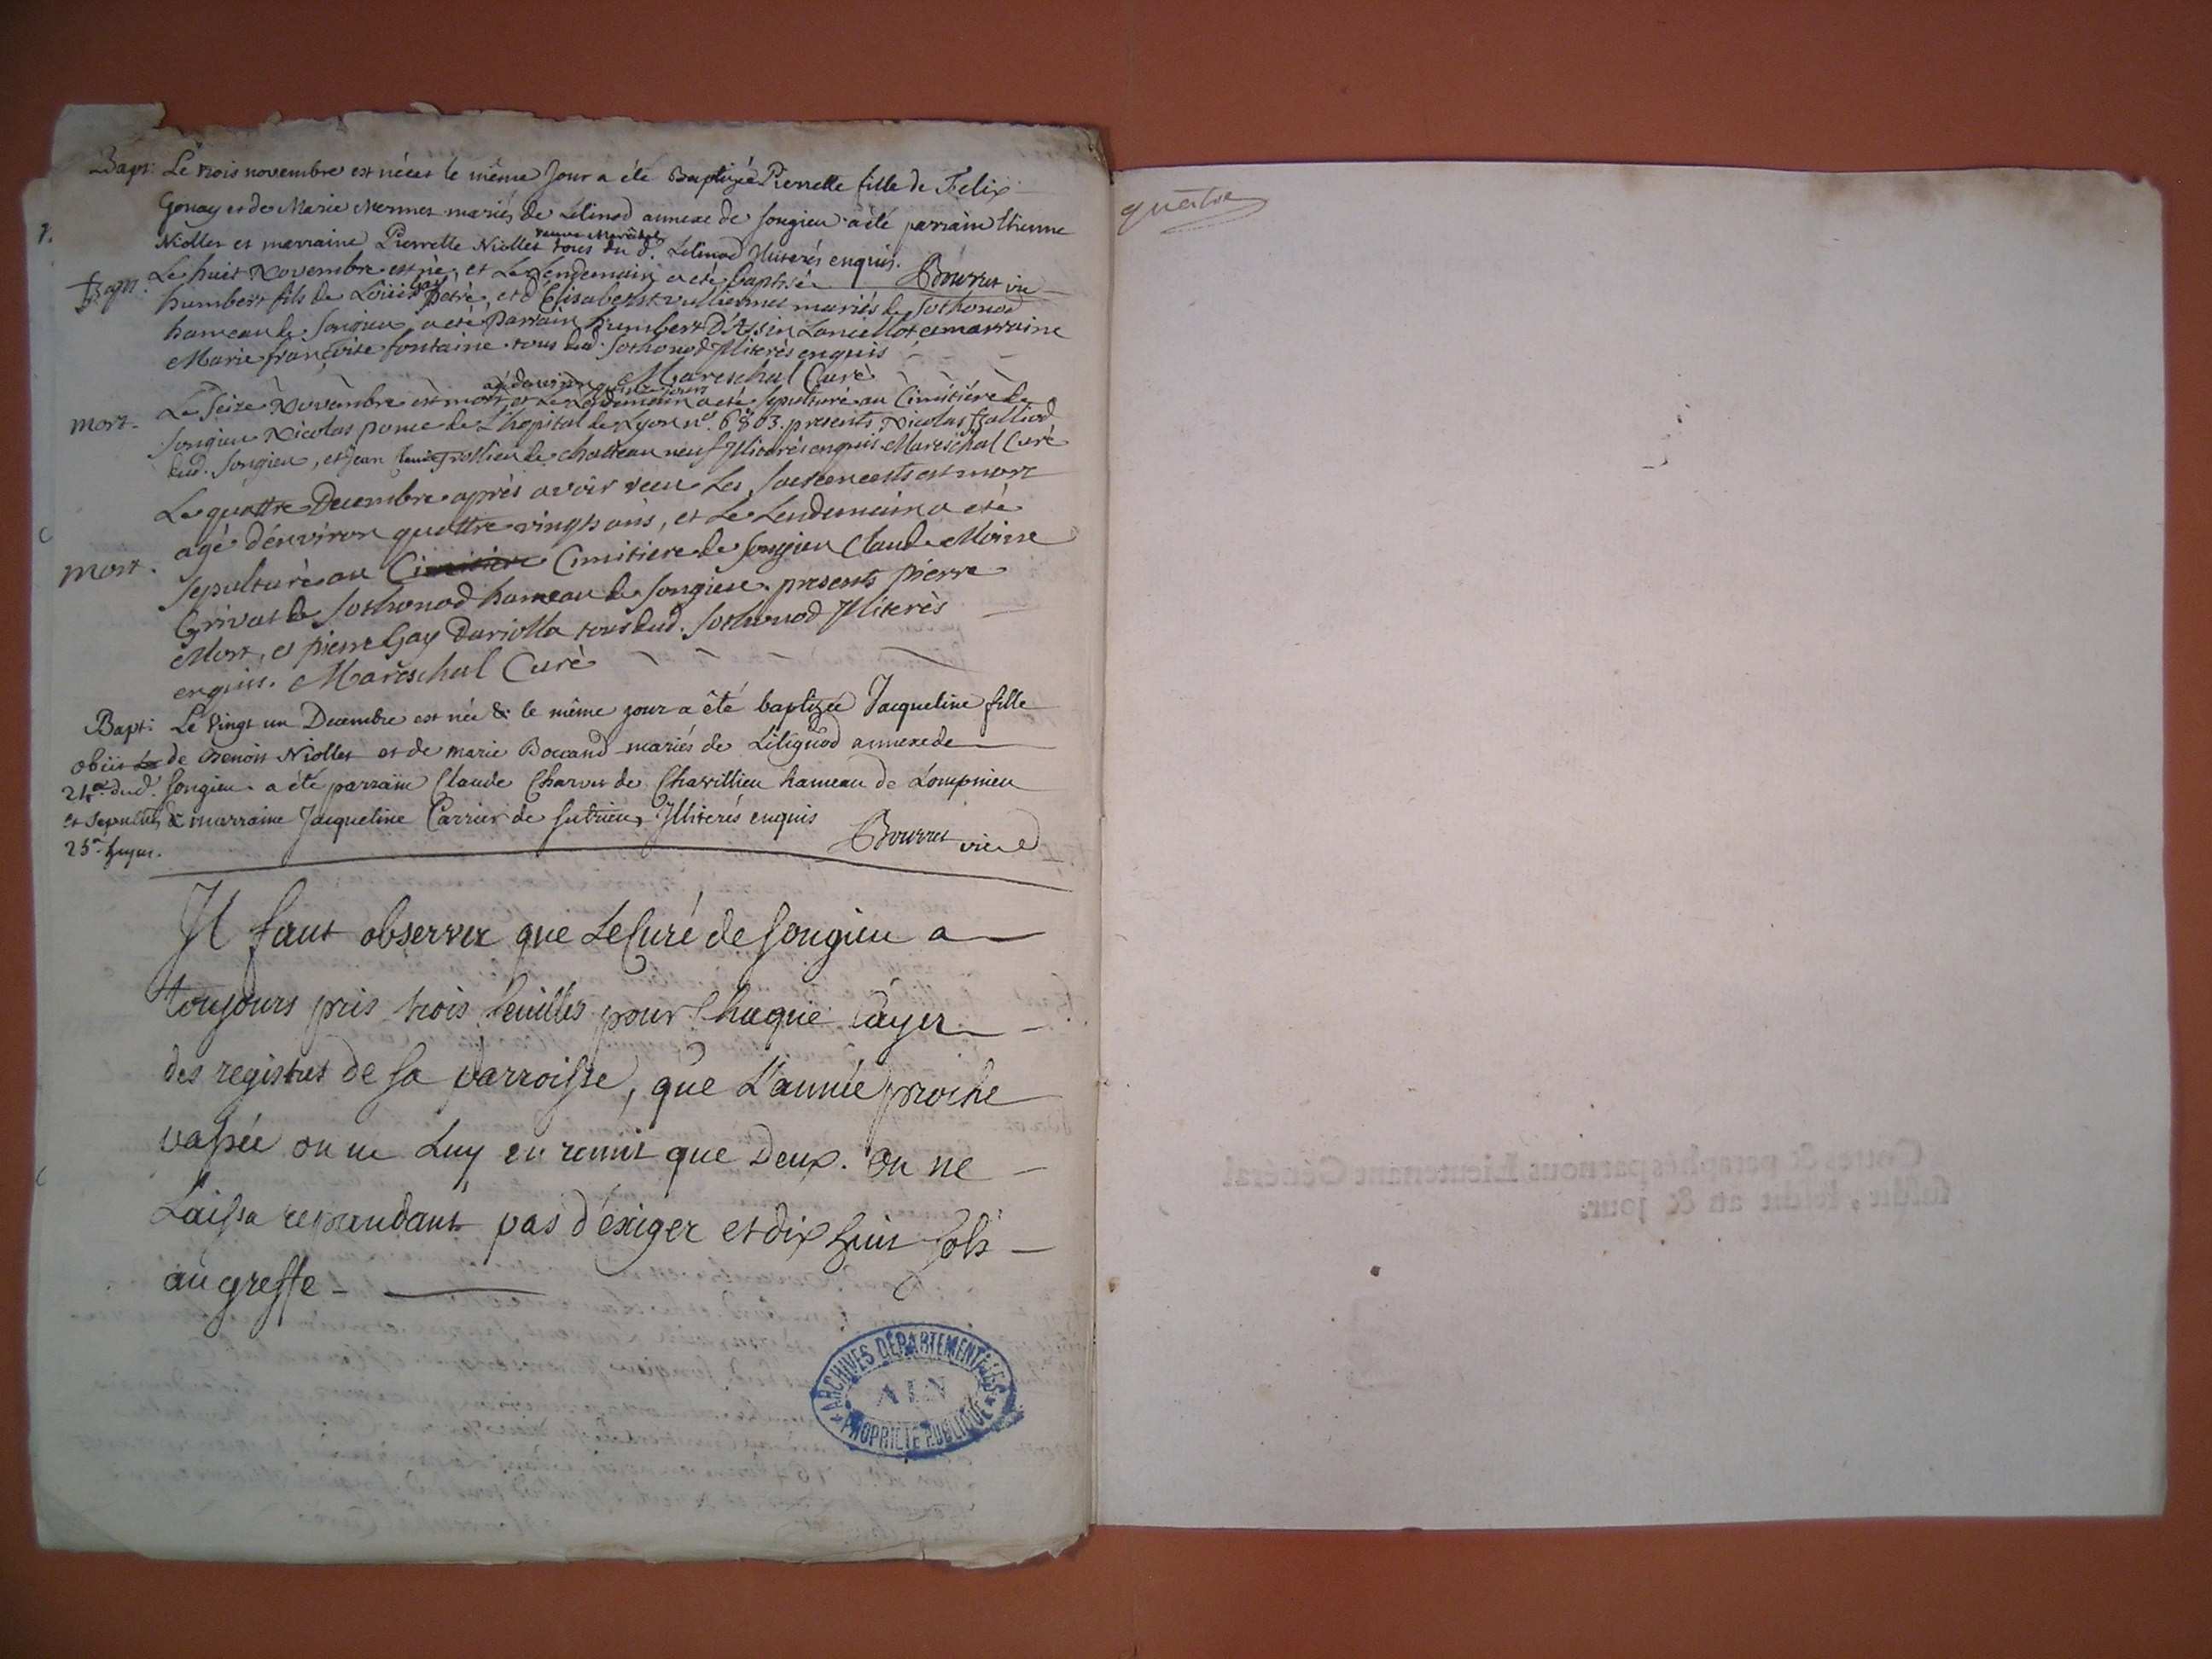 Bapt: Le trois novembre est néeet le même Jour a été Baptizée Pierrette fille de Felix
Gonay et de Marie Mermet mariés de Lilinod annexe de Songieu a été parrain Etienne
Niollet et marraine Pierrette Niollet veuve Maréchal tous du d. Lilinod Illiterés enquis. Bourret vic
Bapt. Le huit Novembre est né, et Le Lendemain a eté baptisé
humbert fils de Loüis Gay Pètre, et d'Elisabeth vulliermet mariés de Sothonod
hameau de Songieu a eté Parrain humbert D'Assin Lancellot et marraine
Marie françoise fontaine tous dud. Sothonod Illiterès enquis
Mareschal Curè
mort. Le Seize Novembre est mort agé d'environ quinze jours et Le Lendemain a eté sepulturé au Cimitière de
Songieu Nicolas ponce de L'hopital de Lyon n.° 6803. presents Nicolas Balliod
dud. Songieu, et Jean Grossieu de chatteau neuf Illiterès enquis. Mareschal Curè
Le quattre Decembre après avoir reçu Les Sacrements est mort
agé d'environ quattre vingts ans, et Le Lendemain a eté
mort. sepulturè au Cimitiere Cimitiere de Songieu Claude Moine
Grivat de Sothonod hameau de Songieu. presents pierre
Mort, et pierre Gay Duriolla tous dud. Sothonod Illiterès
enquis. Mareschal Curè
Bapt: Le vingt un Decembre est née & le même jour a été baptizée Jacqueline fille
obiit de Benoit Niollet et de marie Bouvand mariés de Lilignod annexe de
21a dud. Songieu a été parrain Claude Charvet de Chavillieu hameau de Lompnieu
et sepulta & marraine Jacqueline Carrier de Sutrieu, Illiterés enquis
23a hujus. Bourret vic
Il faut observer que Le Curé de Songieu a
toujours pris trois feuilles pour Chaque Cayer
des registres de Sa parroisse, que L'année proche
passée on ne Luy en remit que Deux. on ne
Laissa cependant pas d'éxiger et dix huit Sols
au greffe
ARCHIVES DÉPARTEMENTALES
AIN
PROPRIÉTÉ PUBLIQUE
quatre
Cottés & paraphés par nous Lieutenant Général
susdit, lesdit an & jour.